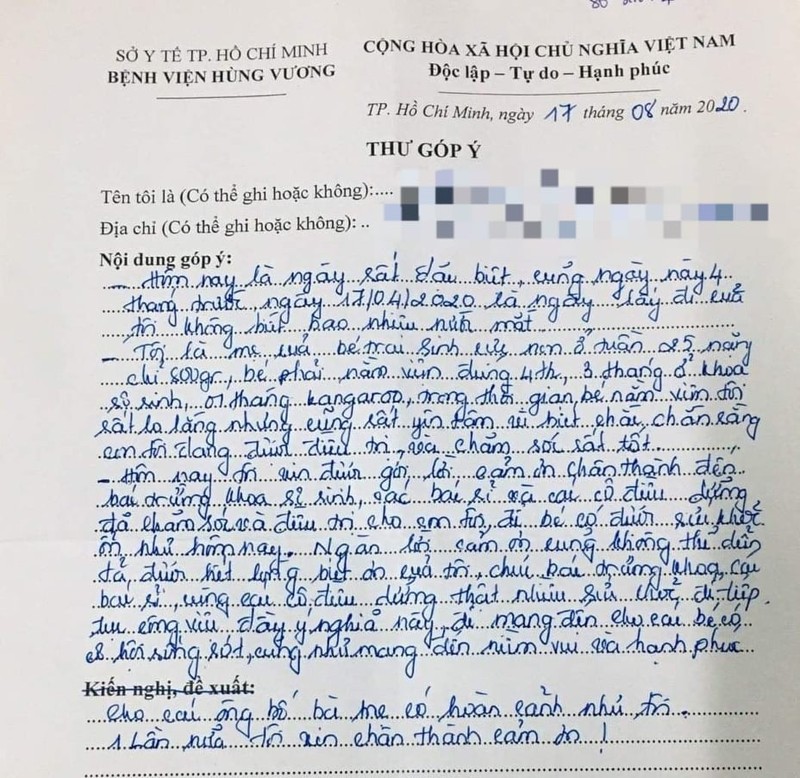 SỞ Y TẾ TP. HỒ CHÍ MINH
BỆNH VIỆN HÙNG VƯƠNG
CỘNG HÒA XÃ HỘI CHỦ NGHĨA VIỆT NAM
Độc lập – Tự do – Hạnh phúc
TP. Hồ Chí Minh, ngày 17 tháng 08 năm 2020.
THƯ GÓP Ý
Tên tôi là (Có thể ghi hoặc không):....
Địa chỉ (Có thể ghi hoặc không): ..
Nội dung góp ý:
– Hôm nay là ngày rất đặc biệt, cũng ngày này 4
tháng trước, ngày 17/04/2020 là ngày lấy đi của
tôi không biết bao nhiêu nước mắt.
– Tôi là mẹ của bé trai sinh cực non ở tuần 25 nặng
chỉ 800gr, bé phải nằm viện đúng 4th, 3 tháng ở khoa
sơ sinh, 01 tháng kangaroo, trong thời gian bé nằm viện tôi
rất lo lắng nhưng cũng rất yên tâm vì biết chắc chắn rằng
em tôi đang được điều trị và chăm sóc rất tốt.
– Hôm nay tôi xin được gởi lời cảm ơn chân thành đến
bác trưởng khoa sơ sinh, các bác sĩ và các cô điều dưỡng
đã chăm sóc và điều trị cho em tôi, để bé có được sức khỏe
ổn như hôm nay. Ngàn lời cảm ơn cũng không thể diễn
tả được hết lòng biết ơn của tôi, chúc bác trưởng khoa, các
bác sĩ, cùng các cô điều dưỡng thật nhiều sức khỏe để tiếp
tục công việc đầy ý nghĩa này, để mang đến cho các bé có
cơ hội sống sót, cũng như mang đến niềm vui và hạnh phúc
Kiến nghị, đề xuất:
cho các ông bố bà mẹ có hoàn cảnh như tôi.
1 Lần nữa tôi xin chân thành cảm ơn !